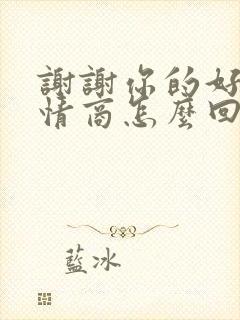 謝謝你的好
情商怎麼回
藍冰